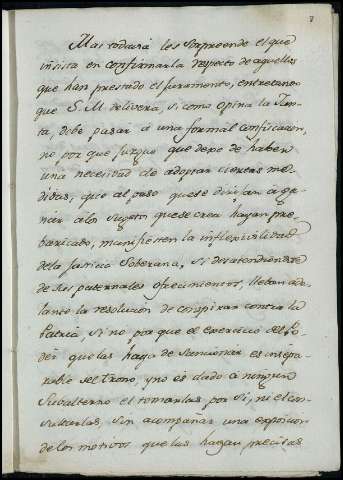 8
Mas todavia les sorprende el qué
insista en confirmarla respecto de aquellos
que han prestado el juramento, entretanto
que S. M. delivera, si como opina la Jun-
ta, debe pasar á una formal confiscacion,
no por que juzgue que dexe de haber
una necesidad de adoptar ciertas me-
didas, que al paso que se dirijan a ga-
nar a los sugetos que se crea hayan pre-
baricato, manifiesten la inflexivilidad
de la Justicia Soberana, si desatendiendose
de sus paternales ofrecimientos, llevan ade-
lante la resolucion de conspirar contra la
Patria, si no por que el exercicio del Po-
der que las haya de sancionar es insepa-
rable del trono, y no es dado á ningun
Subalterno el tomarlas por si, ni el con-
sultarlas, sin acompañar una exposicion
de los motivos que las hagan precisas